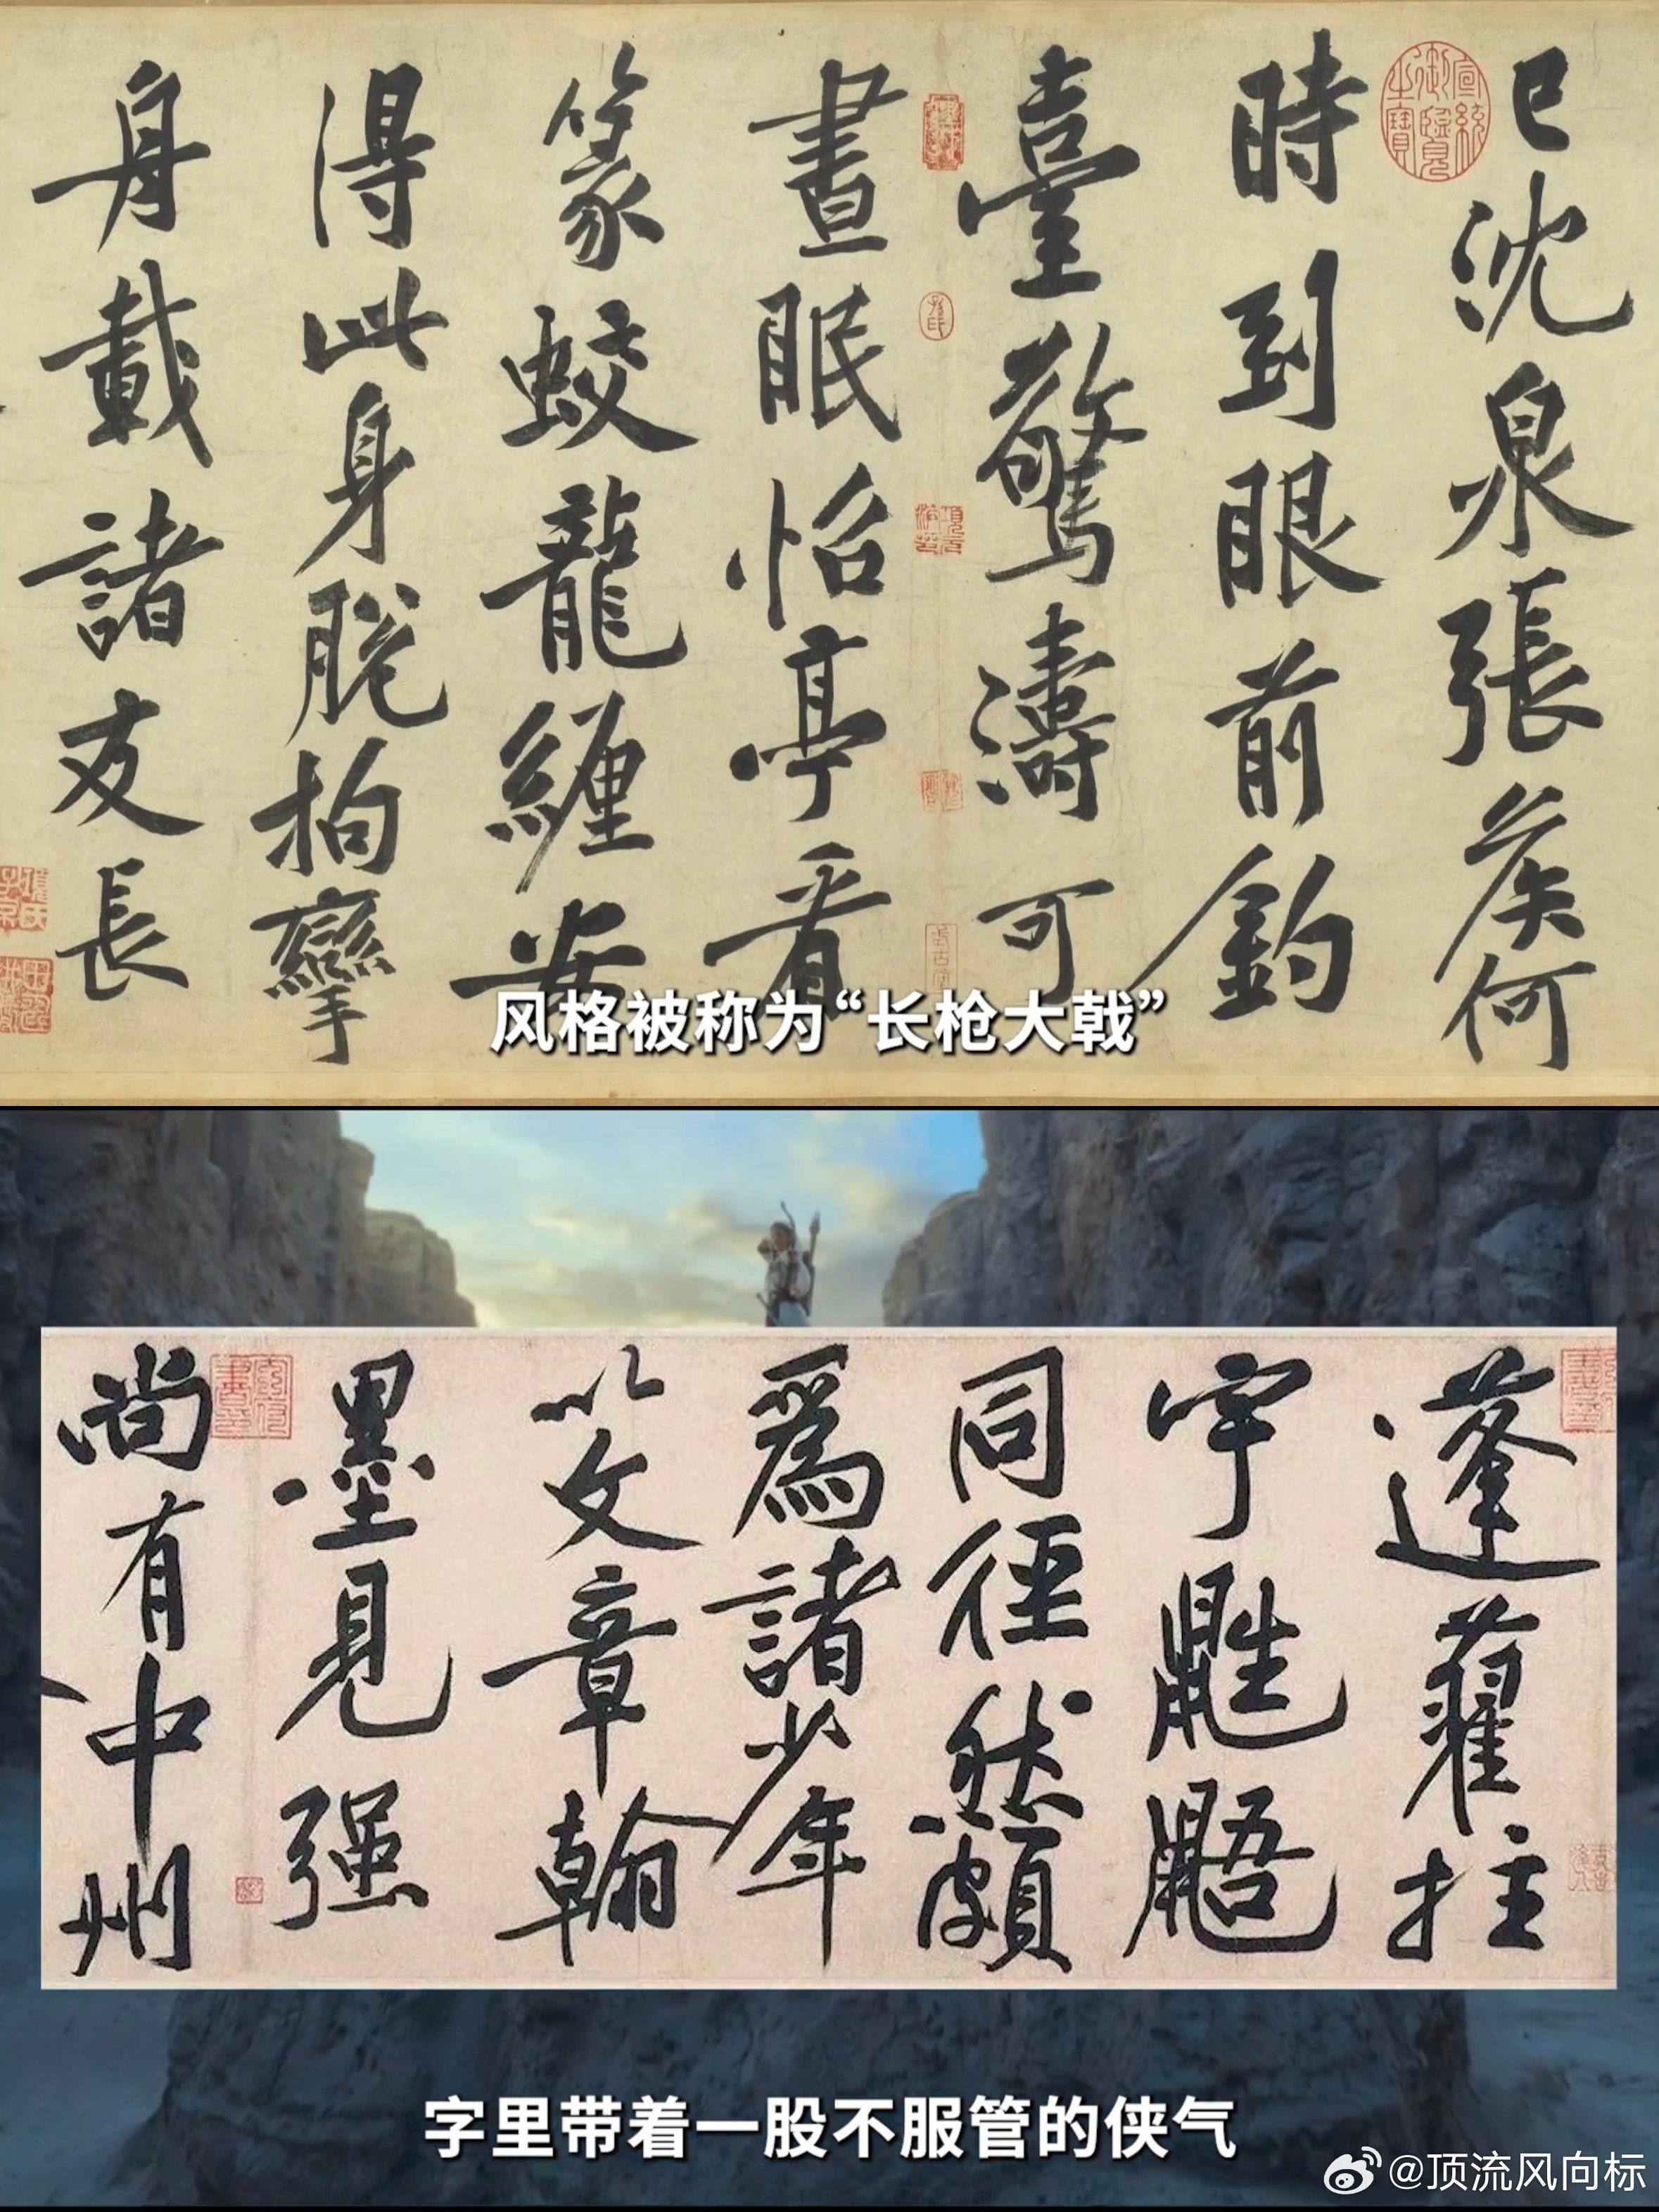 已沈泉張侯何
時到眼前釣
臺驚濤可
晝眠怡亭看
篆蛟龍纏安
得此身脫拘攣
舟載諸友長
宣統御覽之寶
风格被称为“长枪大戟”
蓬藋拄
宇鼪鼯
同徑然頗
爲諸少年
以文章翰
墨見强
尚有中州
字里带着一股不服管的侠气
@顶流风向标